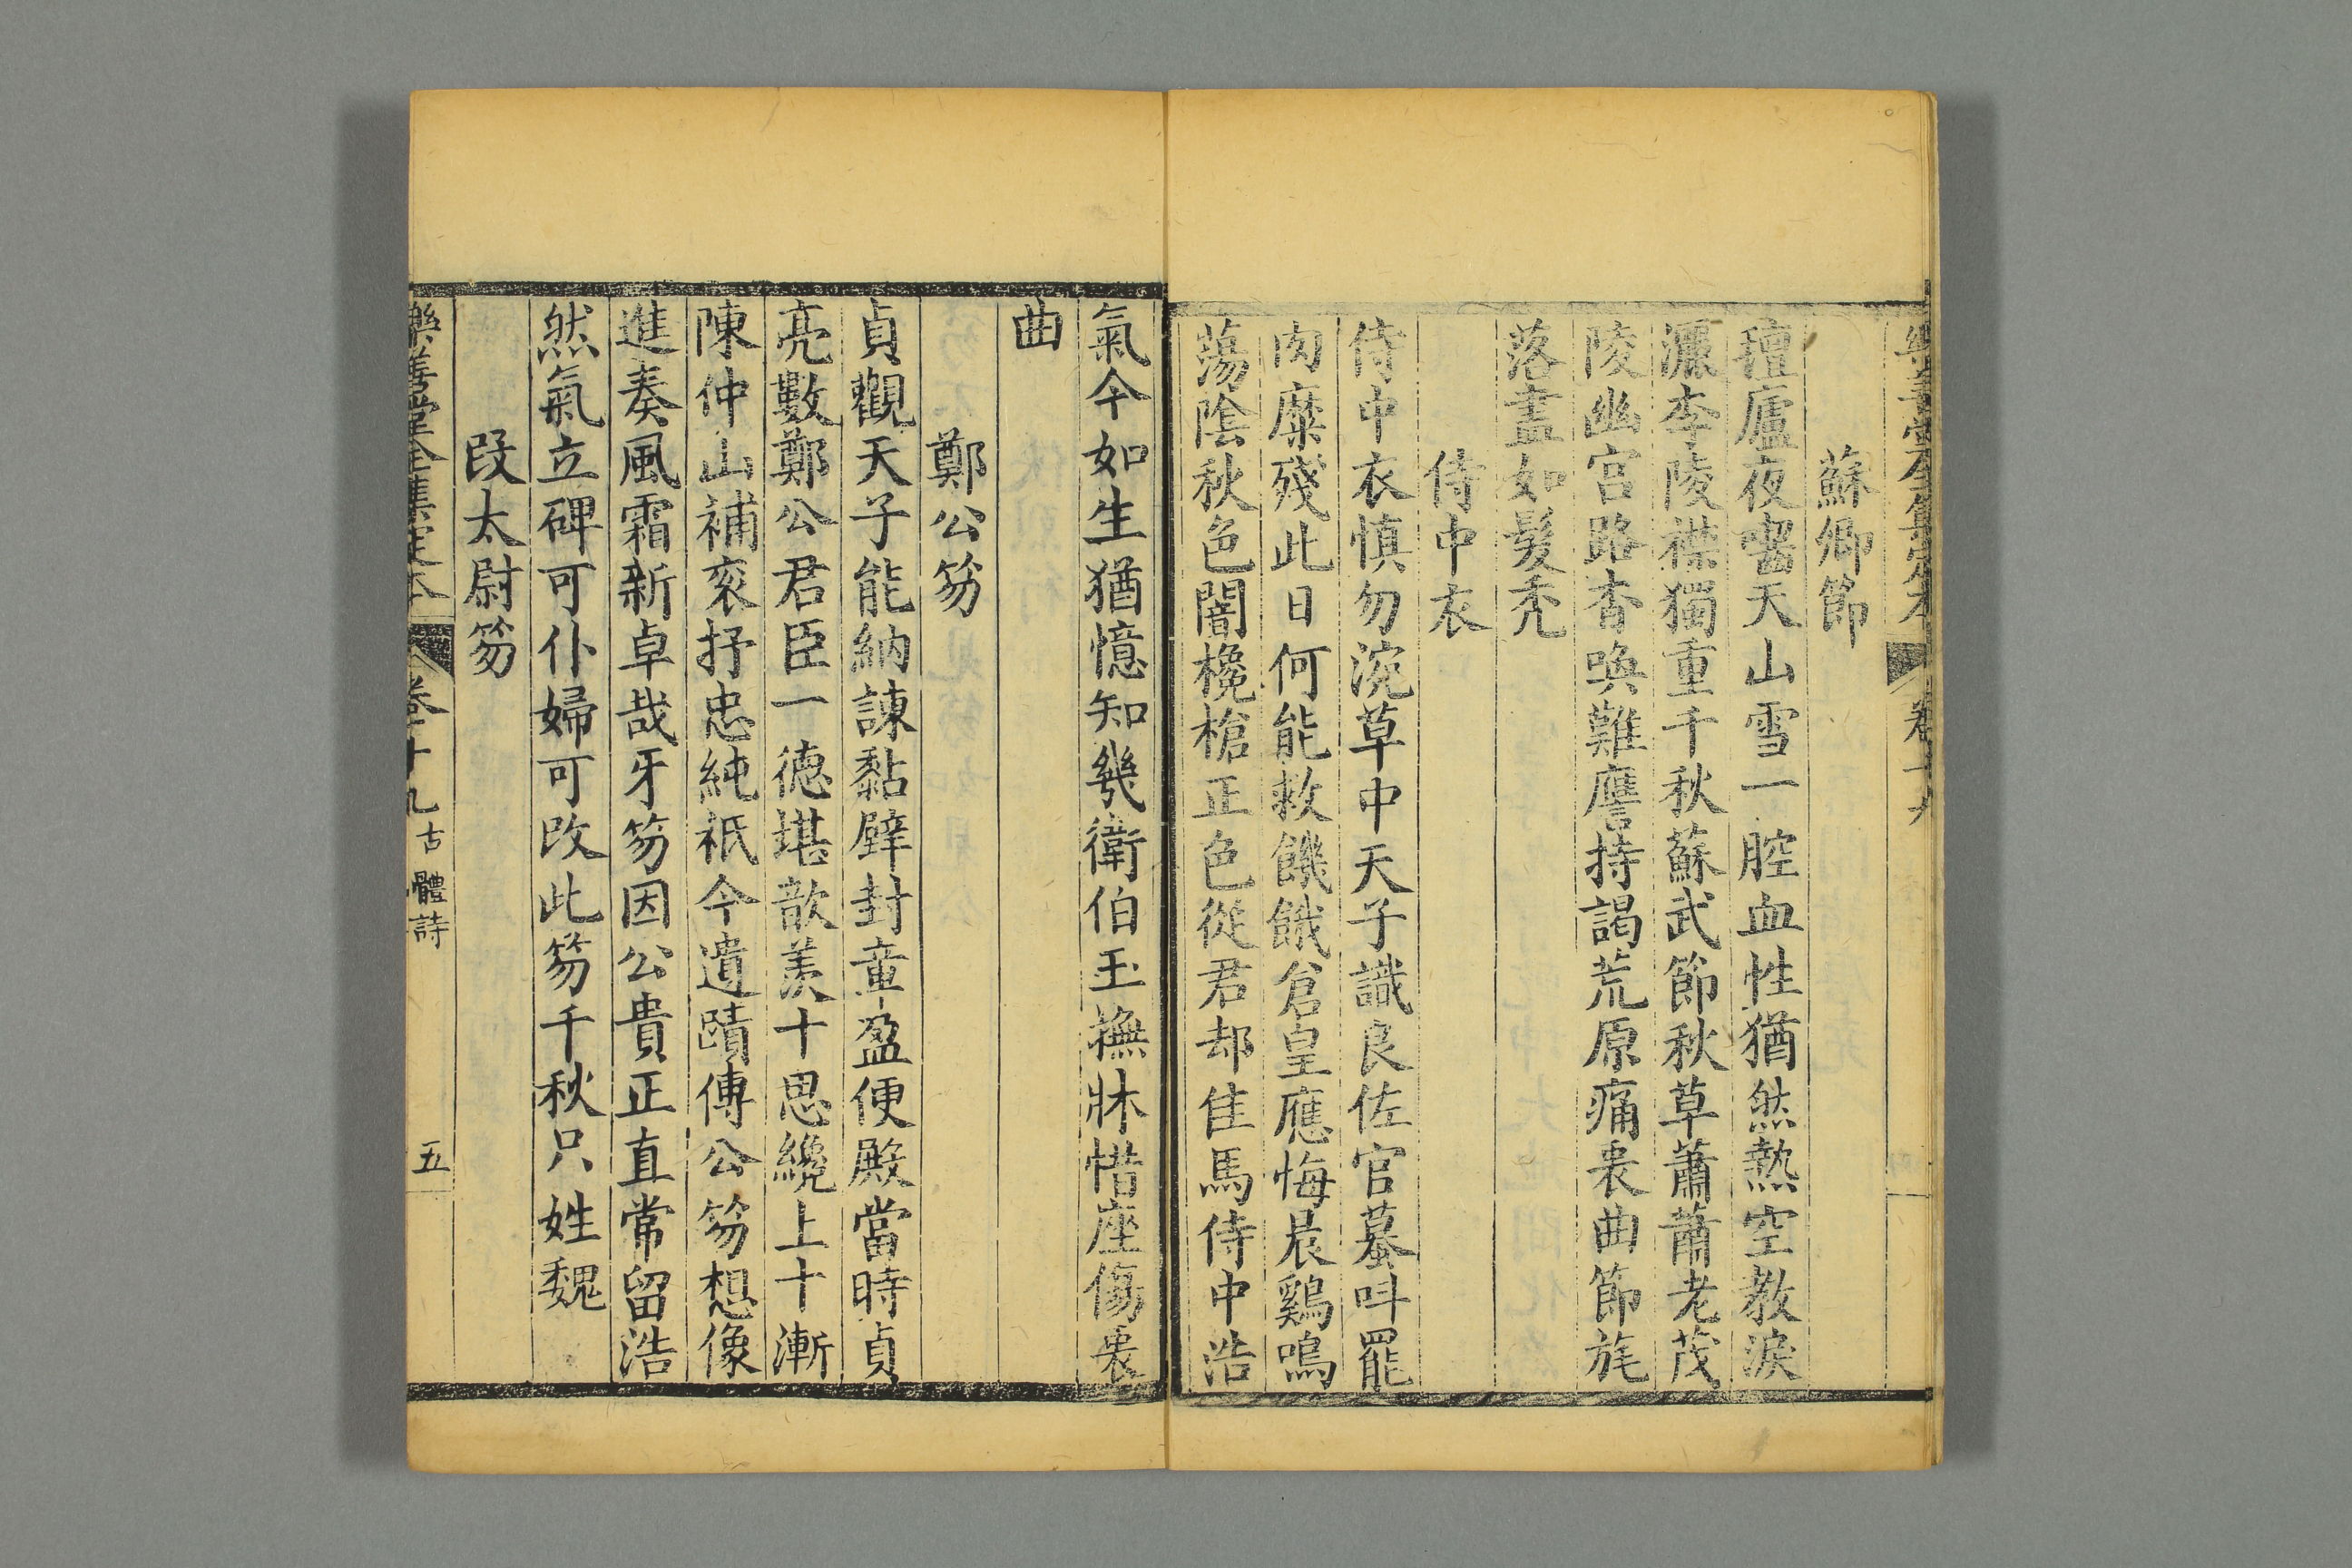 樂善堂全集定本 卷十九
蘇卿節
氊廬夜嚙天山雪一腔血性猶然熱空教淚
灑李陵襟獨重千秋蘇武節秋草蕭蕭老茂
陵幽宮路杳喚難譍持謁荒原痛衷曲節旄
落盡如髮禿
侍中衣
侍中衣慎勿涴草中天子識良佐官蟇叫罷
肉糜殘此日何能救饑餓倉皇應悔晨鷄鳴
蕩陰秋色闇欃槍正色從君却隹馬侍中浩
氣今如生猶憶知幾衛伯玉撫牀惜座傷衷
曲
鄭公笏
貞觀天子能納諫黏壁封章盈便殿當時貞
亮數鄭公君臣一德堪歆羨十思纔上十漸
陳仲山補衮抒忠純祇今遺蹟傳公笏想像
進奏風霜新卓哉牙笏因公貴正直常留浩
然氣立碑可仆婦可改此笏千秋只姓魏
段太尉笏
樂善堂全集定本 卷十九 古體詩 五